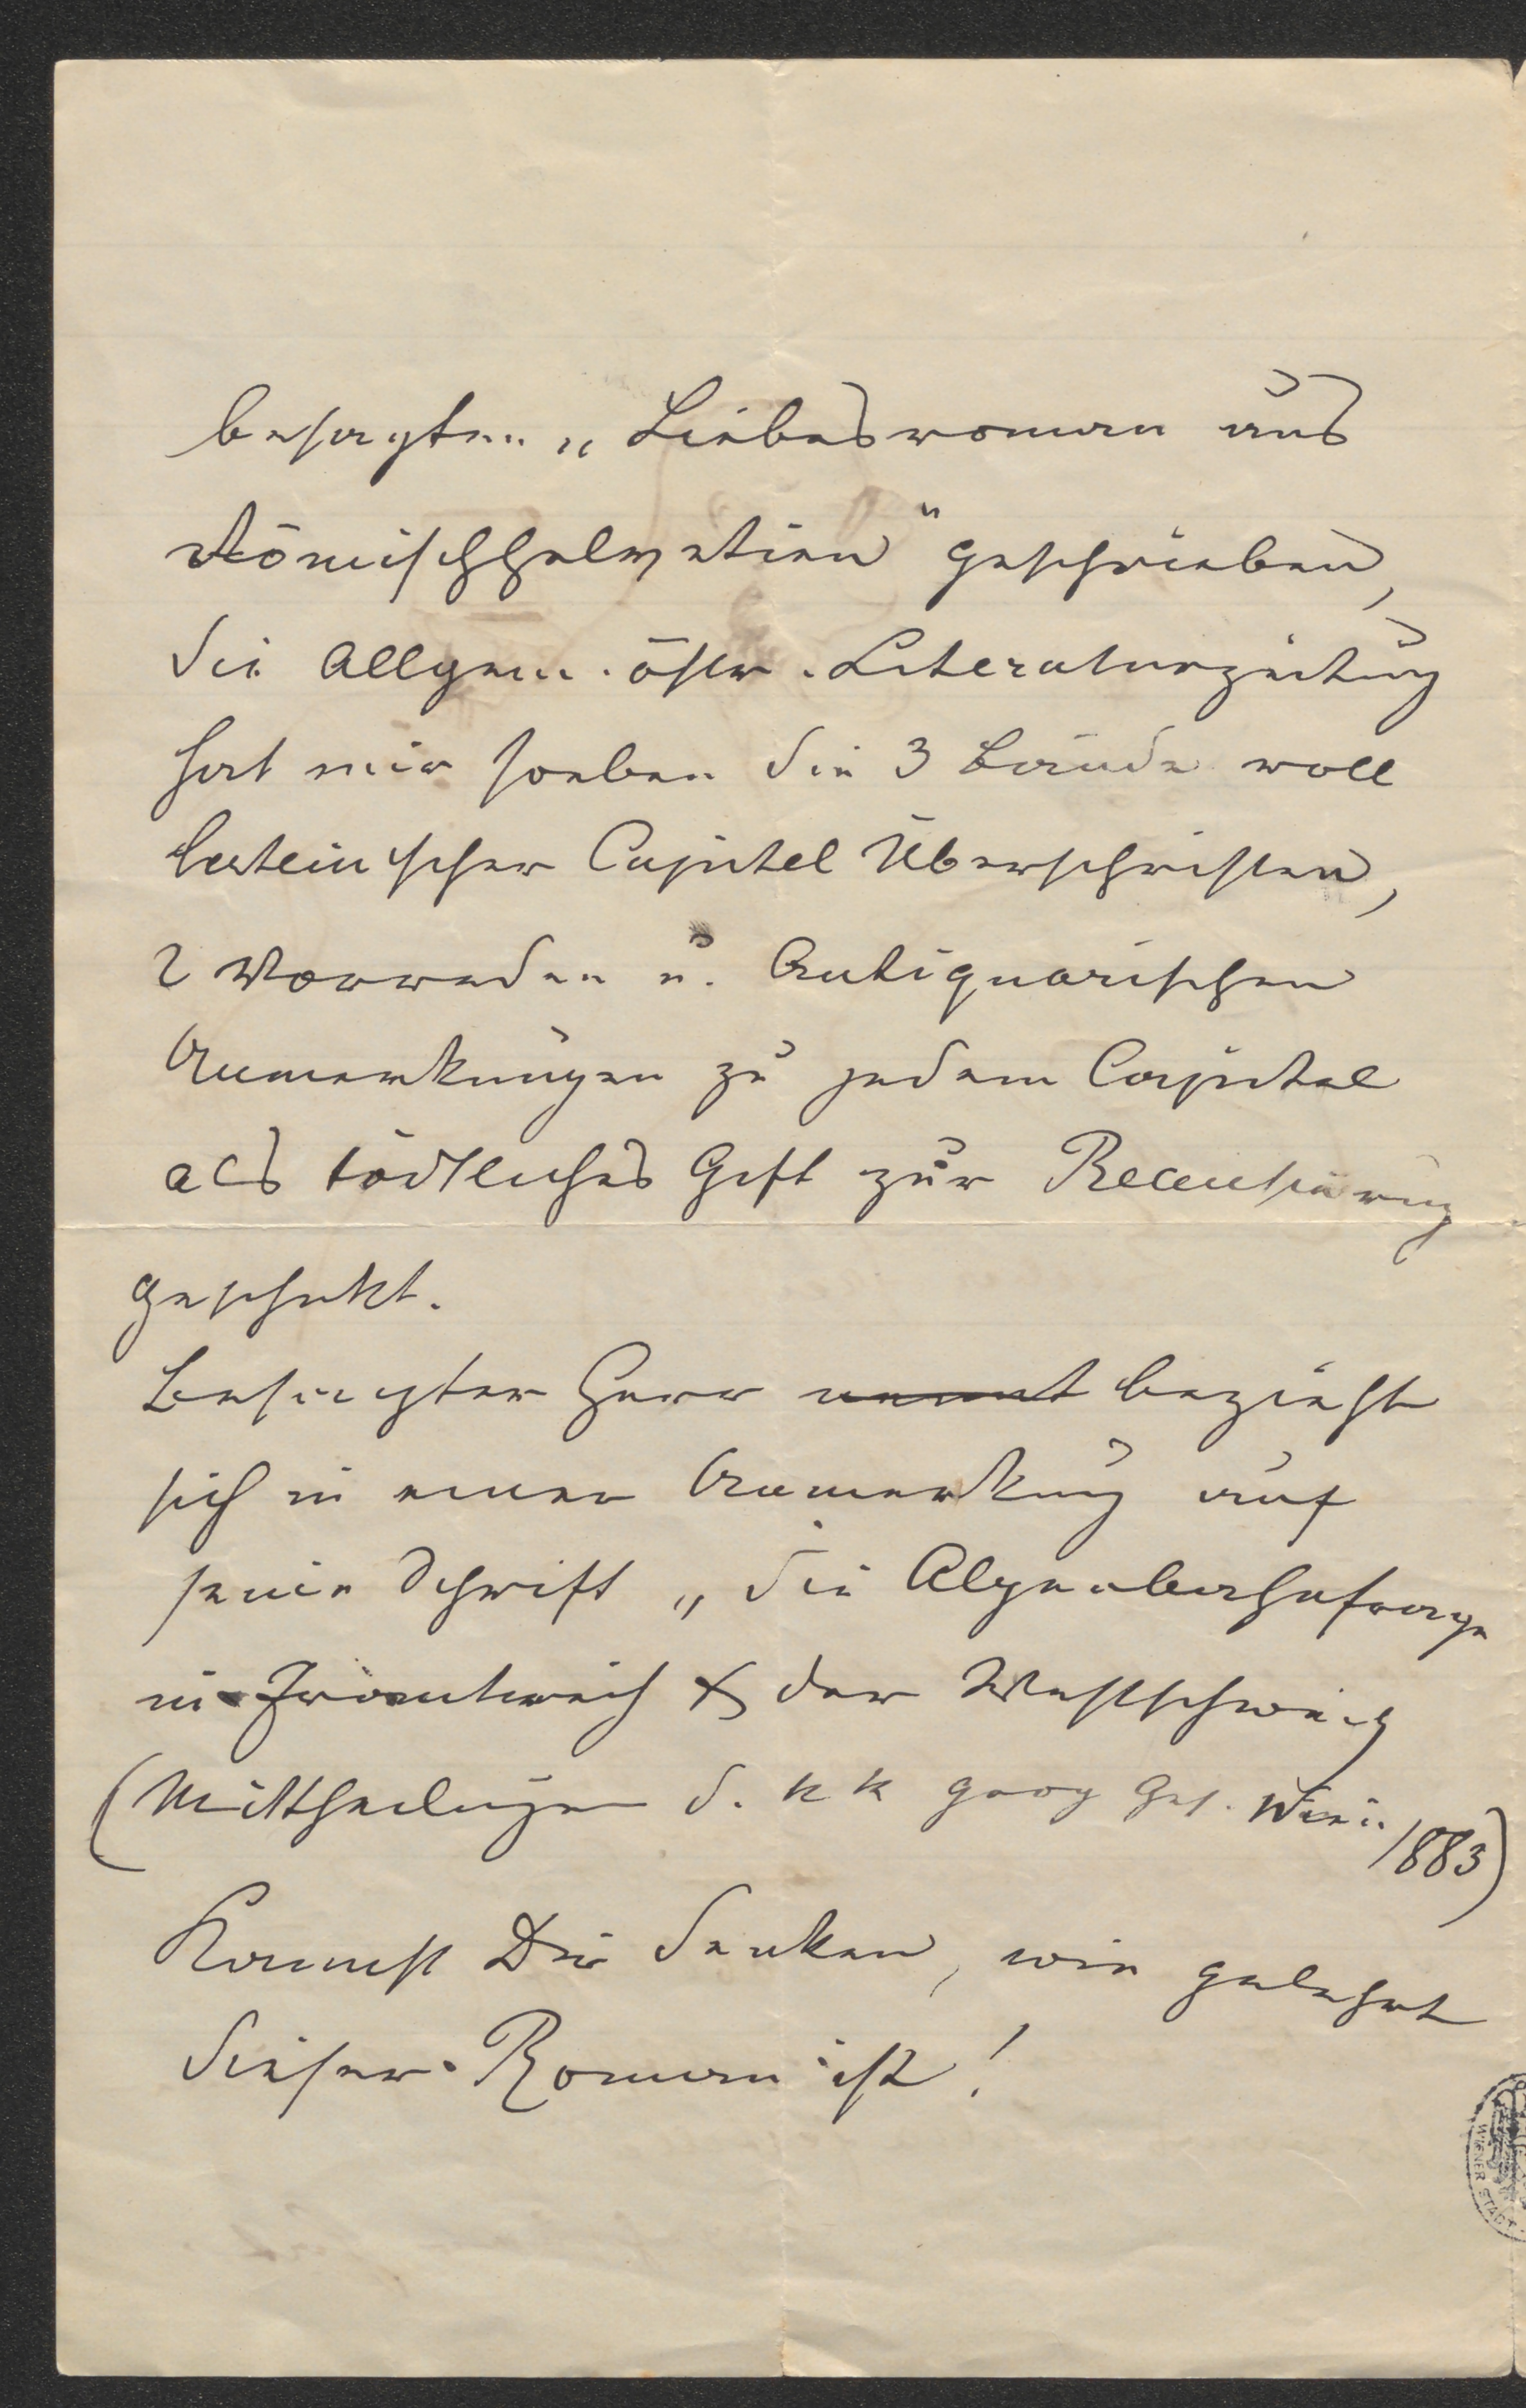 besagten „Liebesroman aus
Römischhelvetien" geschrieben,
die Allgem. östr. Literaturzeitung
hat mir soeben die 3 Bände voll
lateinischer Capitel Überschriften,
2 Vorreden u. Antiquarischen
Anmerkungen zu jedem Capitel
als tödtliches Gift zur Recensirung
geschikt.
Besagter Herr nennt bezieht
sich in einer Anmerkung auf
seine Schrift „die Algenabohefrage
in Frankreich & der Westschweiz
(Mittheilungen d. k k geog Ges. Wien
1883)
Kannst Dir denken, wie gelehrt
dieser Roman ist!
WIENER STADT